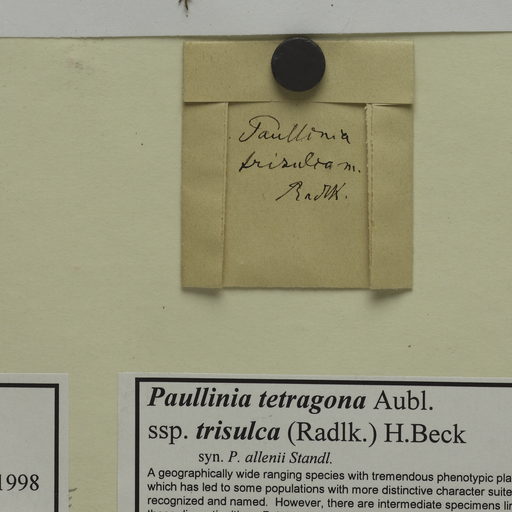 Paullinia
trisulca m.
Radlk.
1998
Paullinia tetragona Aubl.
ssp. trisulca (Radlk.) H.Beck
syn. P. allenii Standl.
A geographically wide ranging species with tremendous phenotypic pla
which has led to some populations with more distinctive character suite
recognized and named. However, there are intermediate specimens lin